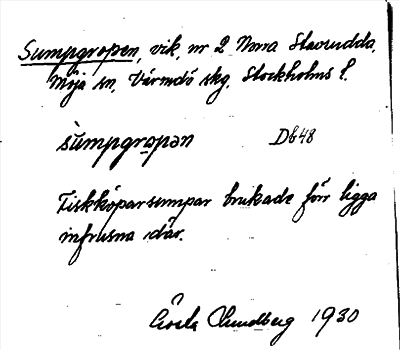 Sumpgropen, vik, nr 2 Norra Stavsudda,
Möja sn, Värmdö skg, Stockholms l.
sumpgrɔpən Db48
Fiskköparsumpar brukade förr ligga
infrusna där.
Gösta Sundberg 1930